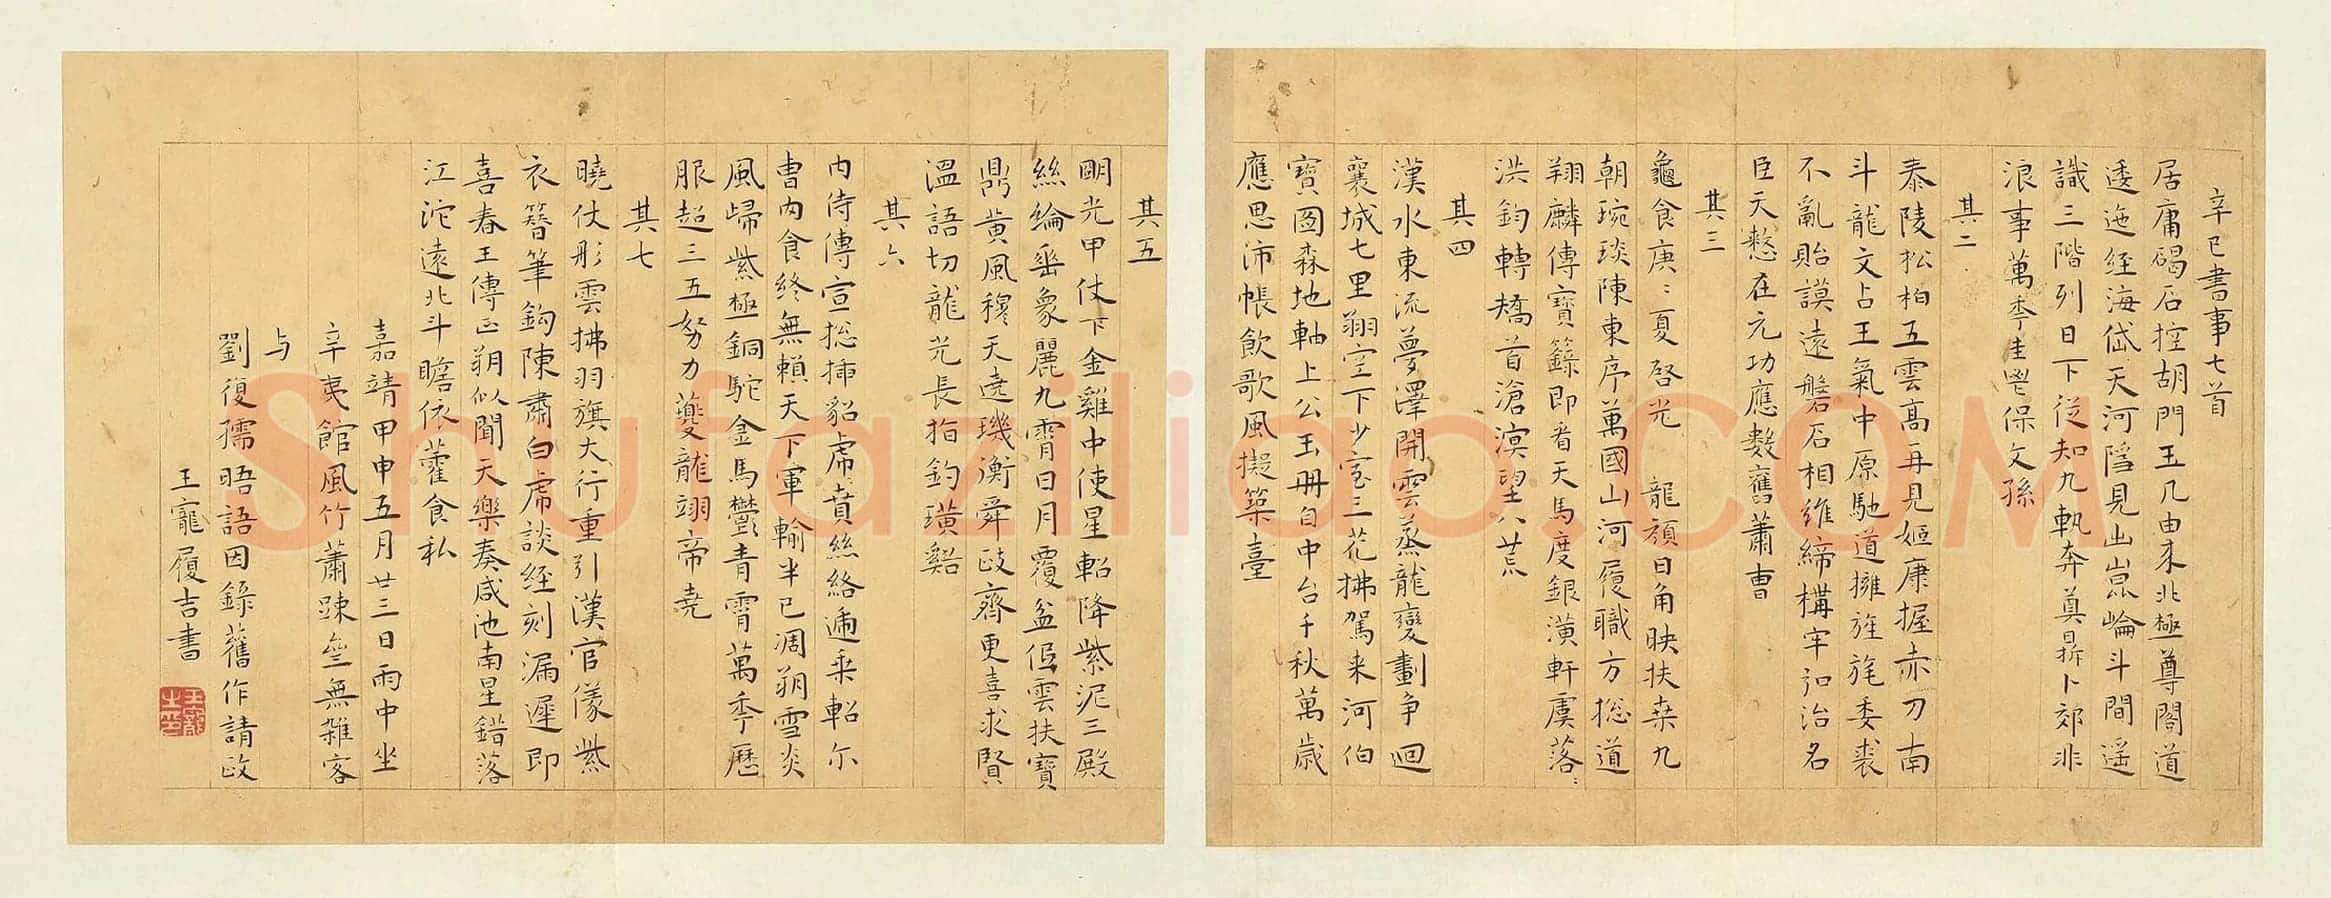 辛巳書事七首
居庸碣石控胡門玉几由来北極尊閣道
逶迤經海岱天河隱見出崑崘斗間遥
識三階列日下從知九軌奔莫最卜郊非
浪事萬季圭鬯保文孫
其二
泰陵松柏五雲高再見姬康握赤刀南
斗龍文占王氣中原馳道擁旌旄委裘
不亂貽謨遠磐石相維締構牢初治名
臣天憗在元功應數舊蕭曹
其三
龜食庚:夏啓光 龍顏日角映扶桒九
朝琬琰陳東序萬國山河履職方揔道
翔麟傳寶籙即看天馬度銀潢軒虞落:
洪鈞轉矯首滄溟望八荒
其四
漢水東流夢澤開雲蒸龍變劃争迴
襄城七里翔空下少室三花拂駕来河伯
寶圖森地軸上公玉冊自中台千秋萬歲
應思沛帳飲歌風擬築臺
其五
朙光甲仗下金雞中使星軺降紫泥三殿
絲綸垂象麗九霄日月覆盆低雲扶寶
鼎黄風穆天遶璣衡舜政齊更喜求賢
溫語切龍光長指釣璜谿
其六
内侍傳宣揔插貂虎賁絲絡逓乘軺尔
曹内食終無賴天下軍輸半已凋朔雪炎
風歸紫極銅駝金馬鬱青霄萬季歷
服超三五努力夔龍翊帝堯
其七
曉仗彤雲拂羽旗大行重引漢官儀紫
衣簪筆鈎陳肅白虎談經刻漏遲即
喜春王傳正朔似聞天樂奏咸池南星錯落
江沱遠北斗瞻依藿食私
嘉靖甲申五月廿三日雨中坐
辛夷館風竹蕭踈空無雜客
与
劉復孺晤語因錄舊作請政
王寵履吉書
王寵之印
Shufaziliao.COM